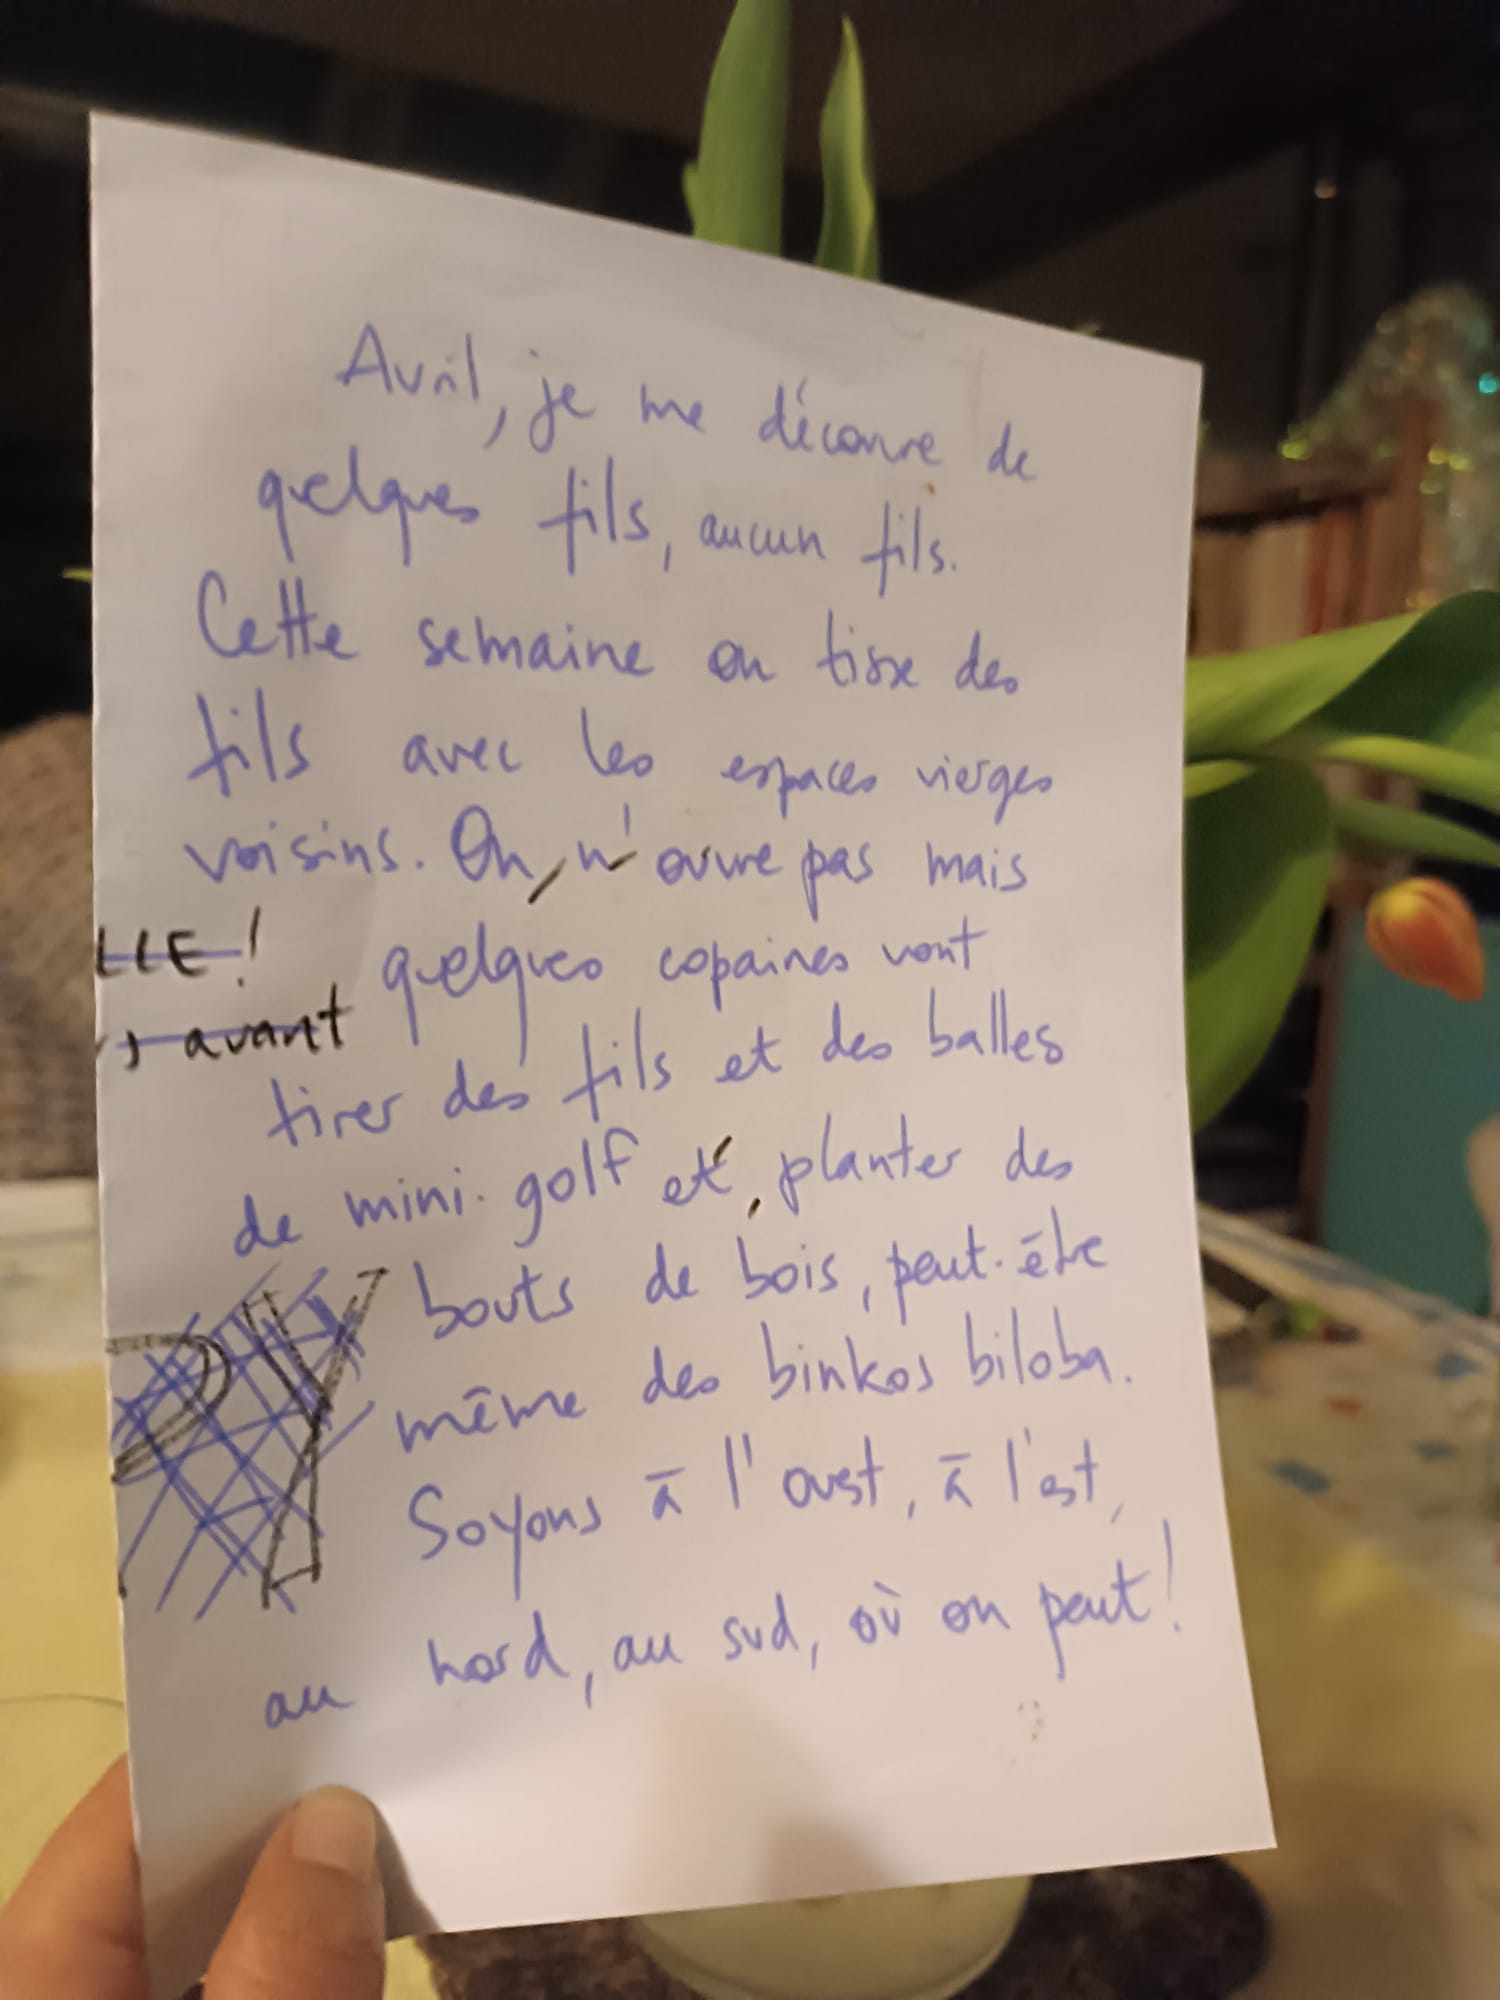 Avril, je me découvre de
quelques fils, aucun fils.
Cette semaine on tisse des
fils avec les espaces vierges
voisins. On, n'ouvre pas mais
LLE!
quelques copaines vont
avant
tirer des fils et des balles
de mini-golf et, planter des
bouts de bois, peut-être
même des binkos biloba.
Soyons à l'ouest, à l'est,
au nord, au sud, où on peut!